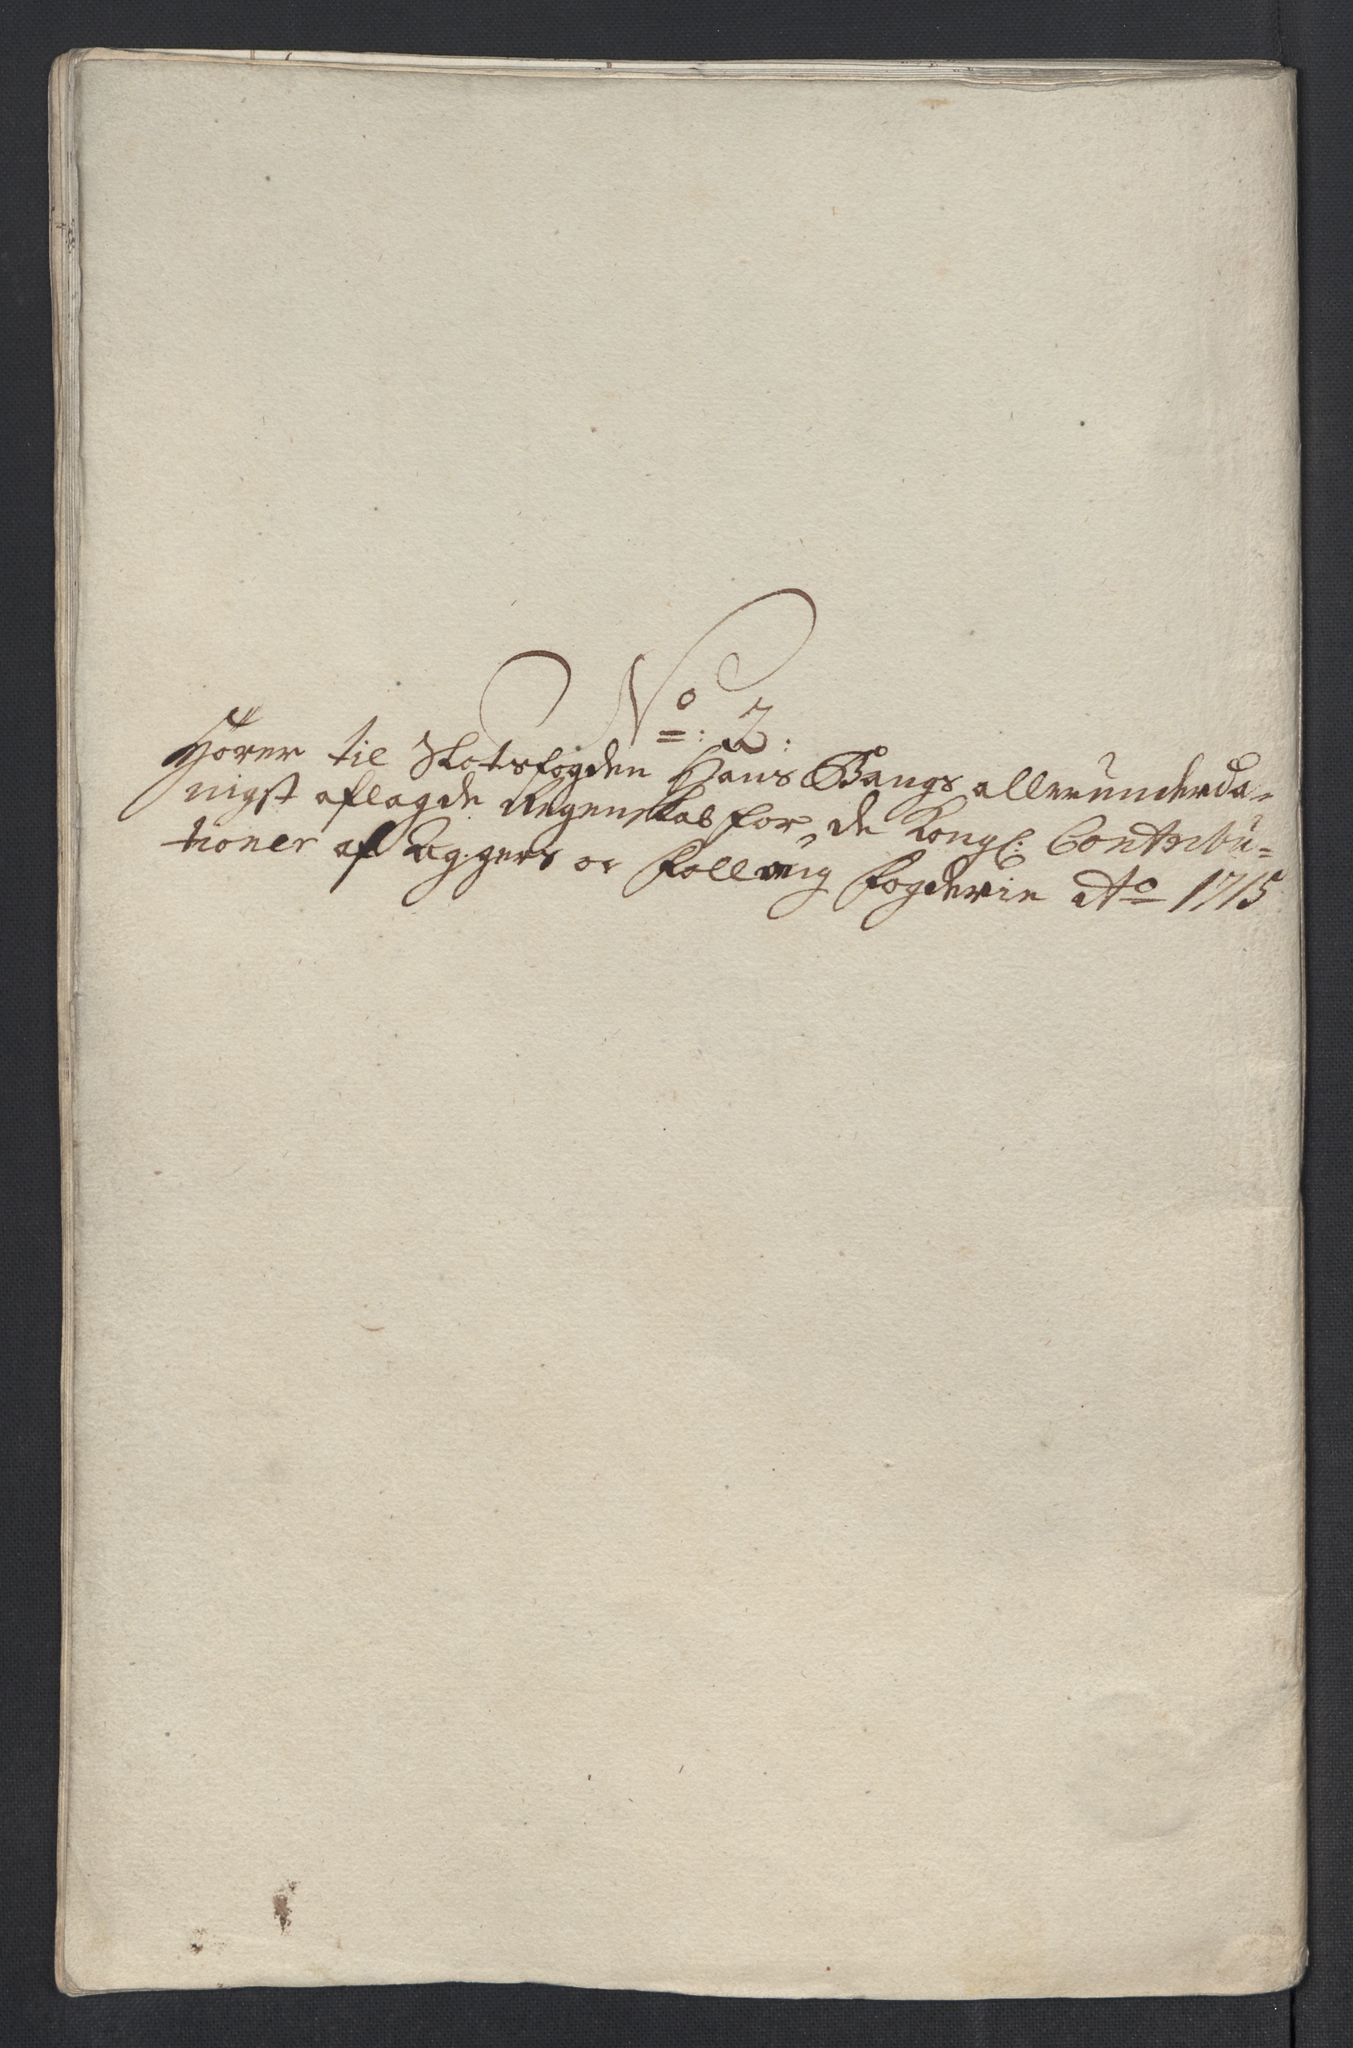 No: 2:
Hører til Slotsfogden Hans Bangs allerunderda-
nigst aflagde Regenskab for de Kongl: Contribu-
tioner af Aggers oc Folloug fogderie Ao 1715